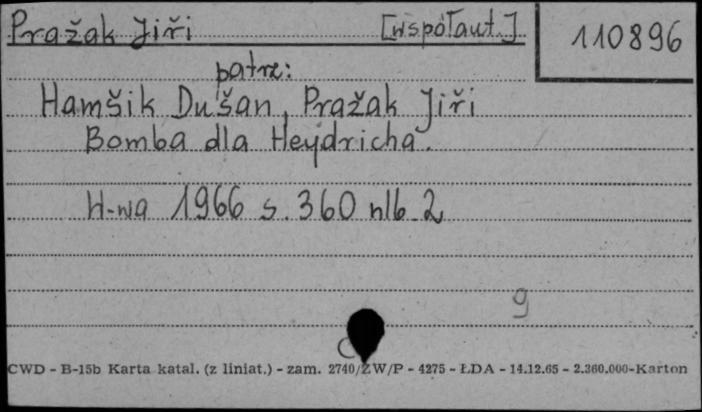 Pražak Jiři [współaut.] 110896
patrz:
Hamšik Dušan, Pražak Jiři
Bomba dla Heydricha.
W-wa 1966 s. 360 nlb. 2
9
C
CWD - B-15b Karta katal. (z liniat.) - zam. 2740/ZW/P - 4275 - ŁDA - 14.12.65 - 2.360.000-Karton